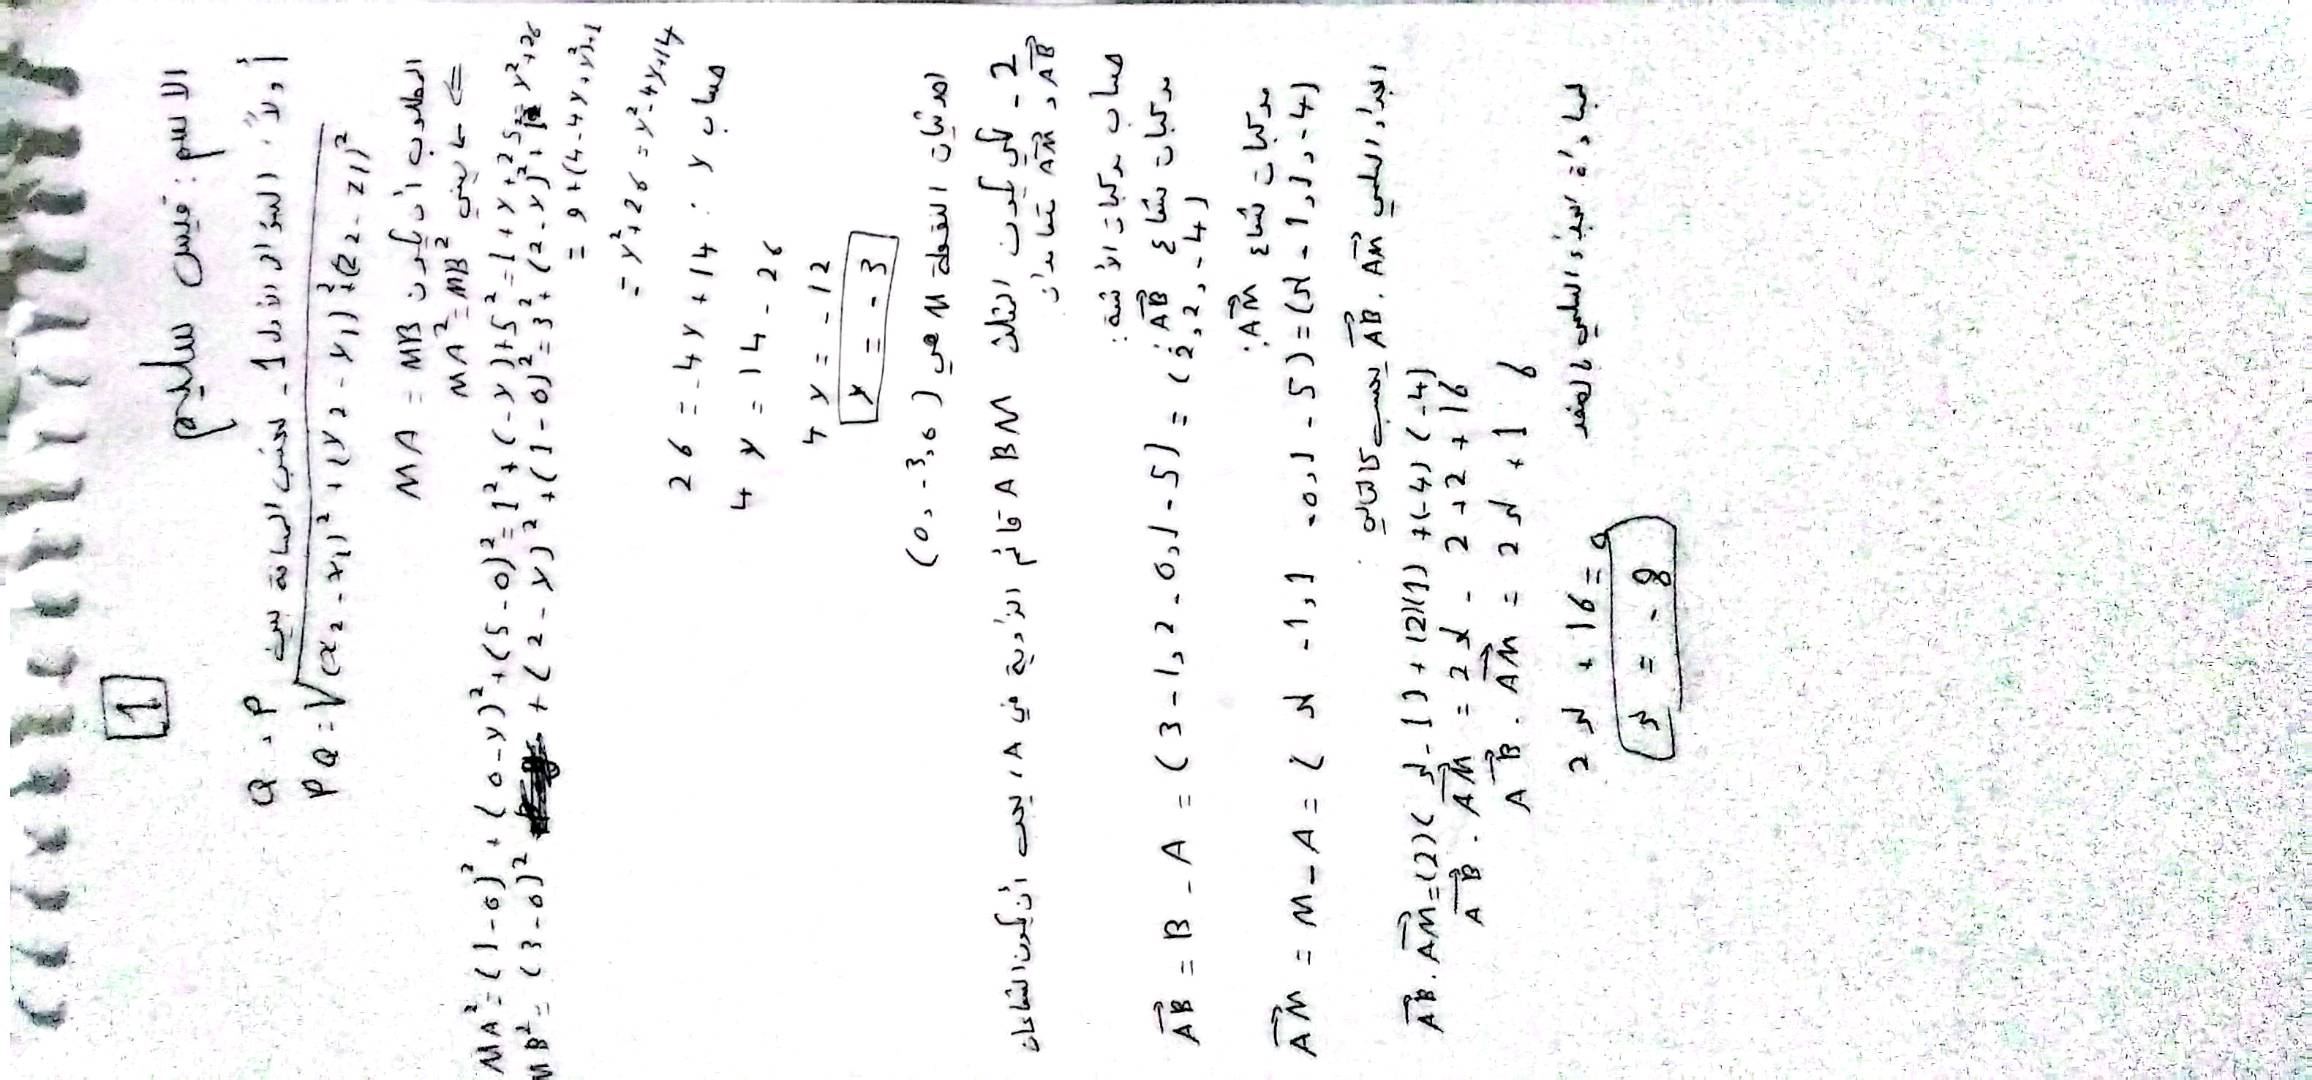 1
الاسم: قيس سليم
أولاً: السؤال الأول 1- نحسب المسافة بين Q و P
PQ = √(x2 - x1)² + (y2 - y1)² + (z2 - z1)²
المطلوب أن يكون MA = MB
⇐ MA² = MB²
MA² = (1-0)² + (0-y)² + (5-0)² = 1² + (-y)² + 5² = 1 + y² + 25 = y² + 26
MB² = (3-0)² + (2-y)² + (1-0)² = 3² + (2-y)² + 1
= 9 + (4 - 4y + y²) + 1
= y² + 26 = y² - 4y + 14
حساب y :
26 = -4y + 14
4y = 14 - 26
4y = -12
y = -3
احداثيات النقطة M هي (0, -3, 0)
2- لكي يكون المثلث ABM قائم الزاوية في A، يجب أن يكون الشعاعان
AB و AM متعامدان
حساب مركبات الأشعة:
مركبات شعاع AB:
AB = B - A = (3-1, 2-0, 1-5) = (2, 2, -4)
مركبات شعاع AM:
AM = M - A = (لا -1, 1-0, 1-5) = (لا-1, 1, -4)
الجداء السلمي AB . AM يحسب كالتالي
AB . AM = (2)(لا-1) + (2)(1) + (-4)(-4)
AB . AM = 2لا - 2 + 2 + 16
AB . AM = 2لا + 16
الجداء السلمي بالصفر
2لا + 16 = 0
لا = -8